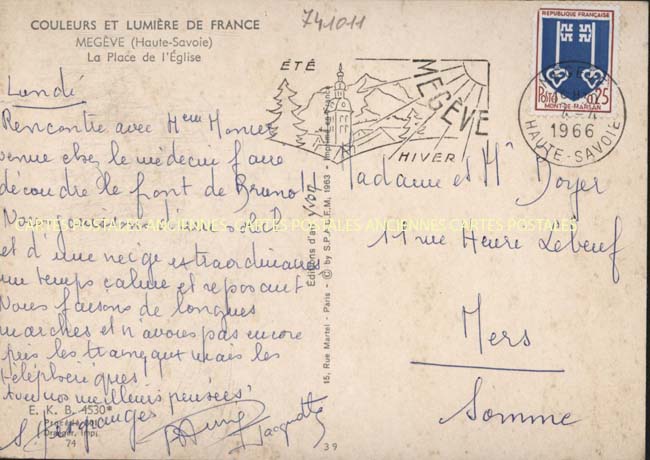 COULEURS ET LUMIÈRE DE FRANCE
MEGÈVE (Haute-Savoie)
La Place de l'Église
741011
Lundi
Rencontre avec Mme
venue chez le médecin faire
découdre le front de Bruno !!
Nous jouissons d'un soleil
et d'une neige extraordinaires
un temps calme et reposant
Nous faisons de longues
marches et n'avons pas encore
pris les traineaux mais les
téléphériques
Avec nos meilleurs pensées
E. K. B. 4530*
Procédé
Draeger, Imp.
74
Jacquotte
39
Editions d'art yvon
15, Rue Martel - Paris - © by S.P.A.D.E.M. 1963 - Imprimé en France
ÉTÉ
MEGÈVE
HIVER
REPUBLIQUE FRANÇAISE
POSTES 0,25
MONT-DE-MARSAN
4-4
1966
HAUTE-SAVOIE
Madame et Mr Doyer
11 rue Henri Lebeuf
Mers
Somme
CARTES POSTALES ANCIENNES CARTES POSTALES ANCIENNES CARTES POSTALES